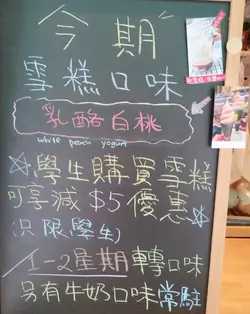 今期
雪糕口味
乳酪白桃
white peach yogurt
☆學生購買雪糕
可享減 $5 優惠☆
(只限學生)
1-2星期轉口味
另有牛奶口味常駐